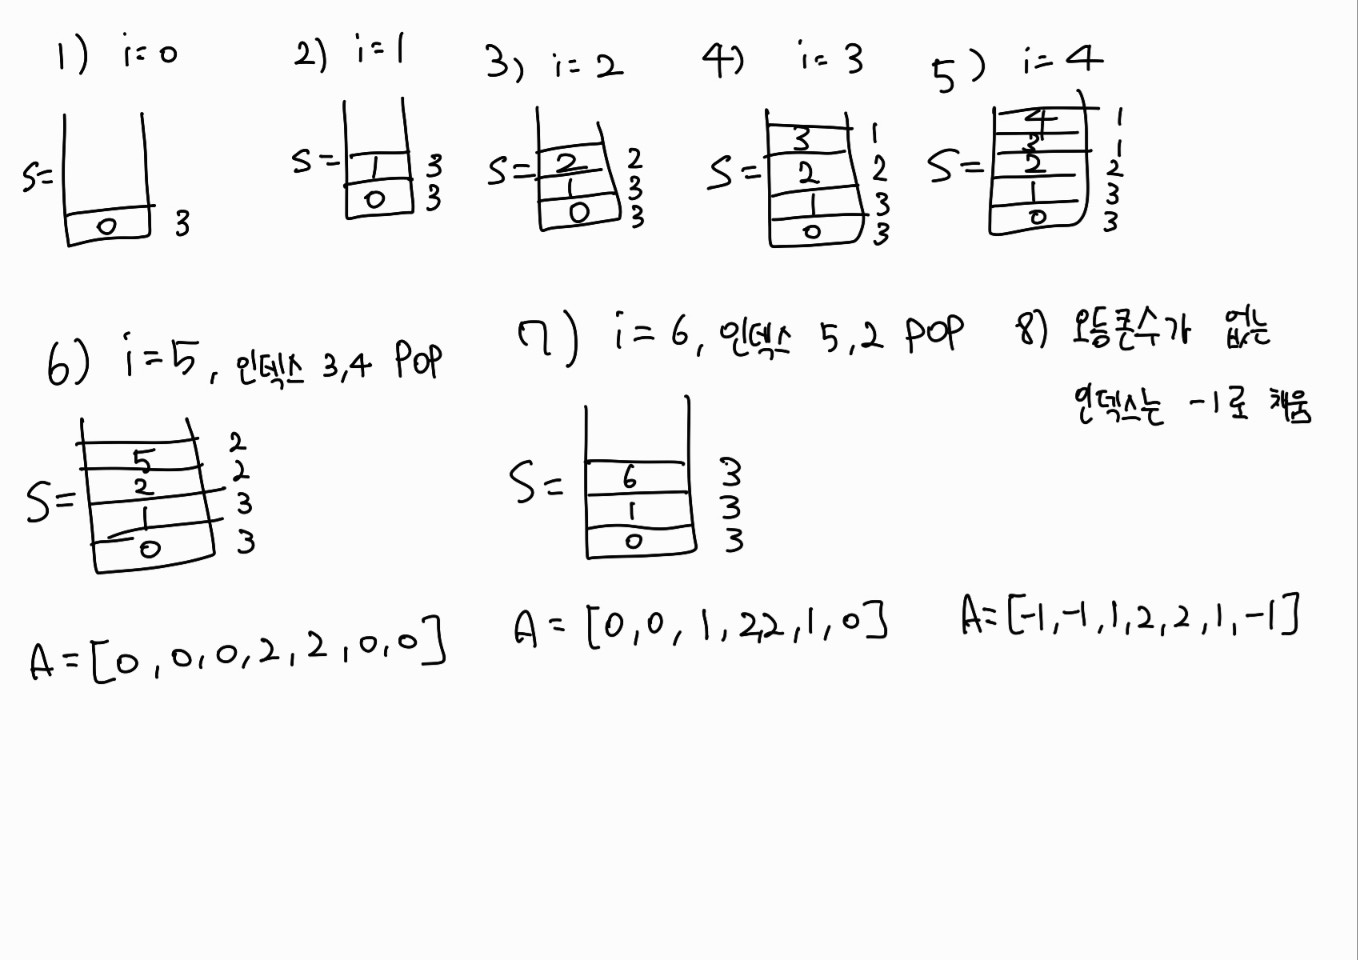 1) i=0
S=
0 3
2) i=1
S=
1 3
0 3
3) i=2
S=
2 2
1 3
0 3
4) i=3
S=
3 1
2 2
1 3
0 3
5) i=4
S=
4 1
3 1
2 2
1 3
0 3
6) i=5, 인덱스 3,4 POP
S=
2
5 2
2 3
1 3
0
A=[0,0,0,2,2,0,0]
7) i=6, 인덱스 5,2 POP
S=
6 3
1 3
0 3
A=[0,0,1,2,2,1,0]
8) 오등큰수가 없는
인덱스는 -1로 채움
A=[-1,-1,1,2,2,1,-1]